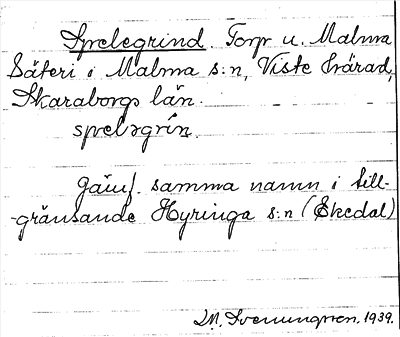 Spelegrind. Torp u. Malma
Säteri i Malma s:n, Viste härad,
Skaraborgs län.
spelǝgrín.
Jämf. samma namn i till-
-gränsande Hyringa s:n (Ekedal)
M. Svenungsson. 1939.